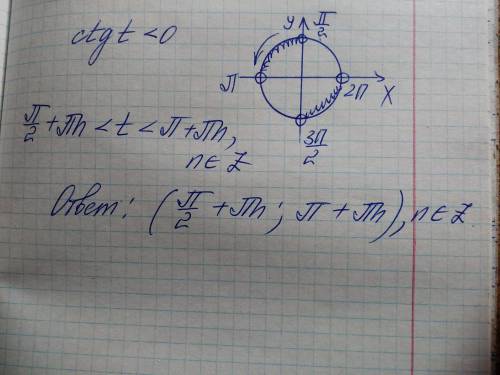 ctg t < 0
y π/2
π 2π x
3π/2
π/2 + πn < t < π + πn,
n ∈ Z
Ответ: (π/2 + πn; π + πn), n ∈ Z